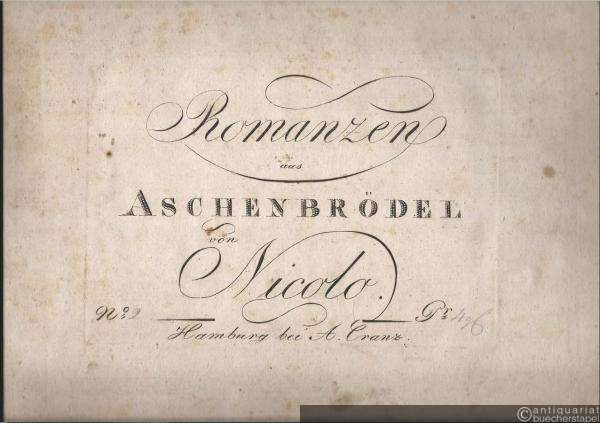 Romanzen
aus
ASCHENBRÖDEL
von
Nicolo.
No. 2 Pr.
Hamburg bei A. Cranz.
© antiquariat
buecherstapel